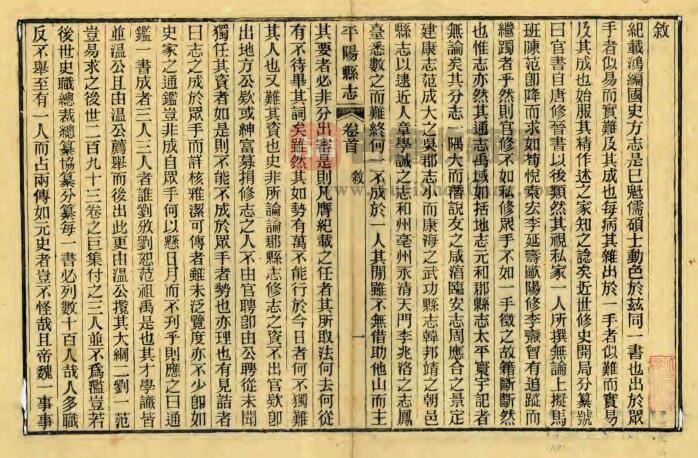 敘
紀載鴻編國史方志是已魁儒碩士動色於茲同一書也出於眾
手者似易而實難及其成也每病其雜出於一手者似難而實易
及其成也始服其精作述之家知之諗矣近世修史開局分纂號
曰官書自唐修晉書以後類然其視私家一人所撰無論上擬馬
班陳范卽降而求如荀悅袁宏李延壽歐陽修李燾曾有追蹤而
繼躅者乎然則官修不如私修眾手不如一手徵之故籍斷斷然
也惟志亦然其通志禹域如括地志元和郡縣志太平寰宇記者
無論矣其分志一隅大而潛說友之咸淳臨安志周應合之景定
建康志范成大之吳郡志小而康海之武功縣志韓邦靖之朝邑
縣志以逮近人章學誠之志和州亳州永清天門李兆洛之志鳳
臺悉數之而難終何一不成於一人其閒雖不無借助他山而主
平陽縣志 卷首 敘 一
其要者必非分出審是則凡膺紀載之任者其所取法何去何從
有不待畢其詞矣雖然其如勢有萬不能行於今日者何不獨難
其人也又難其資也史非所論論郡縣修志之資不出官欵卽
出地方公欵或紳富募捐修志之人不由官聘卽由公聘從未聞
獨任其資者如是則不能不成於眾手者勢也亦理也有見詰者
曰志之成於眾手而許核雅潔可傳者雖未泛覽度亦不少卽如
史家之通鑑豈非成自眾手何以懸日月而不刋乎則應之曰通
鑑一書成者三人三人者誰劉攽劉恕范祖禹是也其才學識皆
並溫公且由溫公薦舉而後出此更由溫公攬其大綱二劉一范
豈易求之後世二百九十三卷之巨集付之三人並不爲濫豈若
後世史職總裁總纂協纂分纂每一書必列數十百人哉人多職
反不舉至有一人而占兩傳如元史者豈不怪哉且帝魏一事事